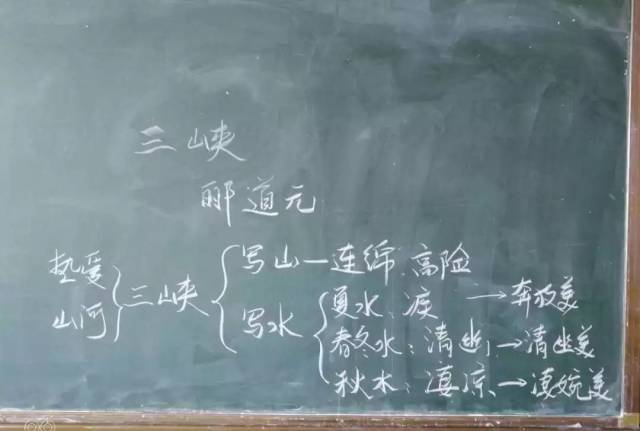 三峡
郦道元
热爱山河 三峡 写山—连绵、高险
写水 夏水、疾 →奔放美
春冬水：清幽→清幽美
秋水：凄凉→凄婉美